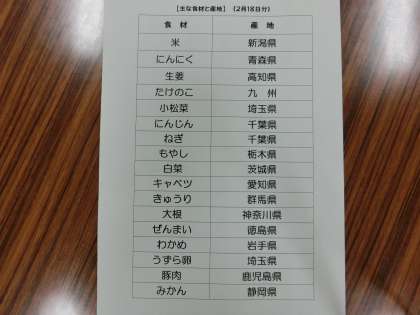 【主な食材と産地】 (2月18日分)
食 材 産 地
米 新潟県
にんにく 青森県
生姜 高知県
たけのこ 九 州
小松菜 埼玉県
にんじん 千葉県
ねぎ 千葉県
もやし 栃木県
白菜 茨城県
キャベツ 愛知県
きゅうり 群馬県
大根 神奈川県
ぜんまい 徳島県
わかめ 岩手県
うずら卵 埼玉県
豚肉 鹿児島県
みかん 静岡県